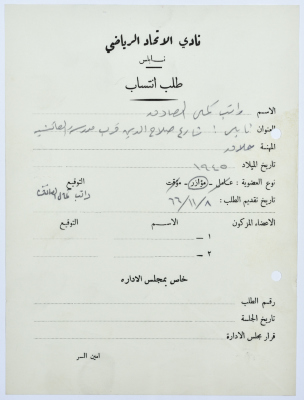 نادي الاتحاد الرياضي
نابلس
طلب انتساب
الاسم راتب
العنوان نابلس : شارع صلاح الدين قرب مدرسة
المهنة حلاق
تاريخ الميلاد ١٩٤٥
نوع العضوية : عامل - مؤازر - مؤقت التوقيع
تاريخ تقديم الطلب : ٨ / ١١ / ٦٦ راتب
الاعضاء المزكون الاسم التوقيع
١ -
٢ -
خاص بمجلس الاداره
رقم الطلب
تاريخ الجلسة
قرار مجلس الادارة
امين السر